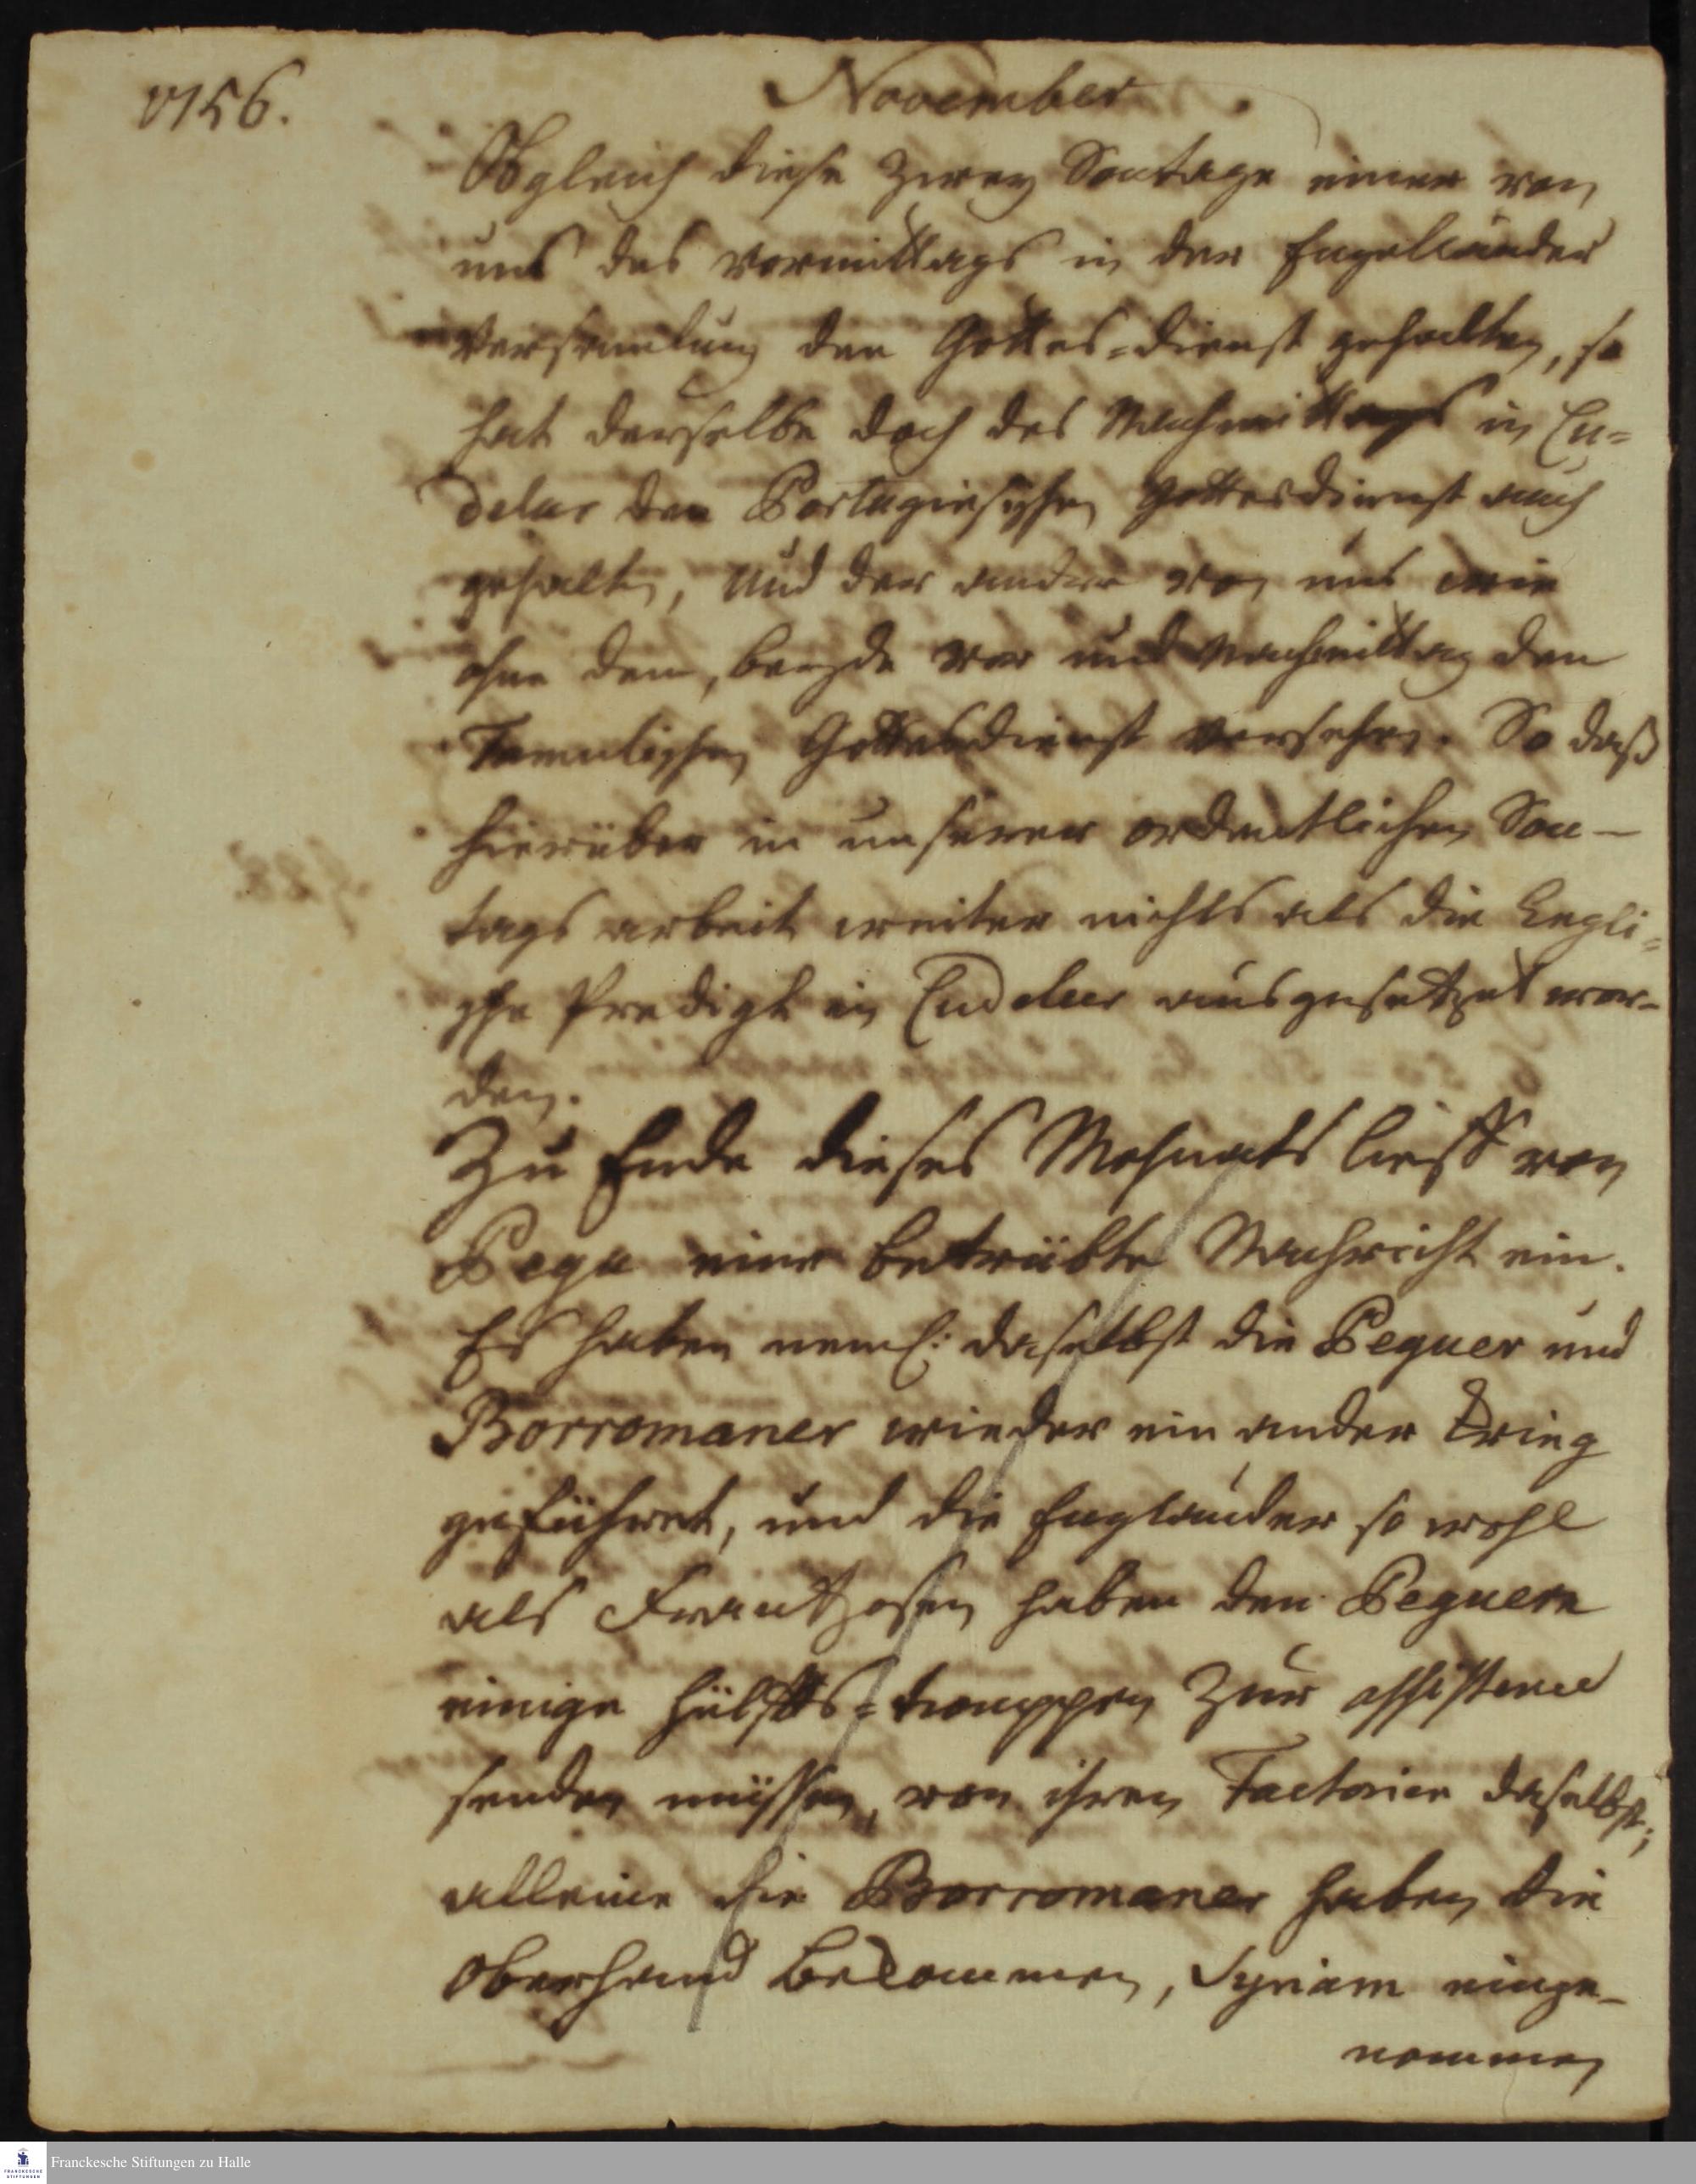 1756.
November
Obgleich diese zwey Sontage einer von
uns des vormittags in der Engelländer
versamlung den Gottes=dienst gehalten, so
hat derselbe doch des Nachmittags in Cu=
delur den Portugiesischen Gottesdienst auch
gehalten, und der andere von uns wie
ohne dem, beyde vor und Nachmittag den
Tamulischen Gottesdienst versehen. So daß
hierüber in unserer ordentlichen Son-
tags arbeit weiter nichts als die Engli=
sche Predigt in Cudelur ausgesetzet wor-
den.
Zu Ende dieses Mohnats lieff von
Pegu eine betrübte Nachricht ein.
Es haben neml: daselbst die Peguer und
Borromaner wieder ein ander Krieg
geführet, und die Engländer so wohl
als Frantzosen haben den Peguern
einige hülffs=trouppen zur assistence
senden müssen, von ihren Factorien daselbst;
alleine die Borromaner haben die
Oberhand bekommen, Syriam einge-
nommen
Franckesche Stiftungen zu Halle